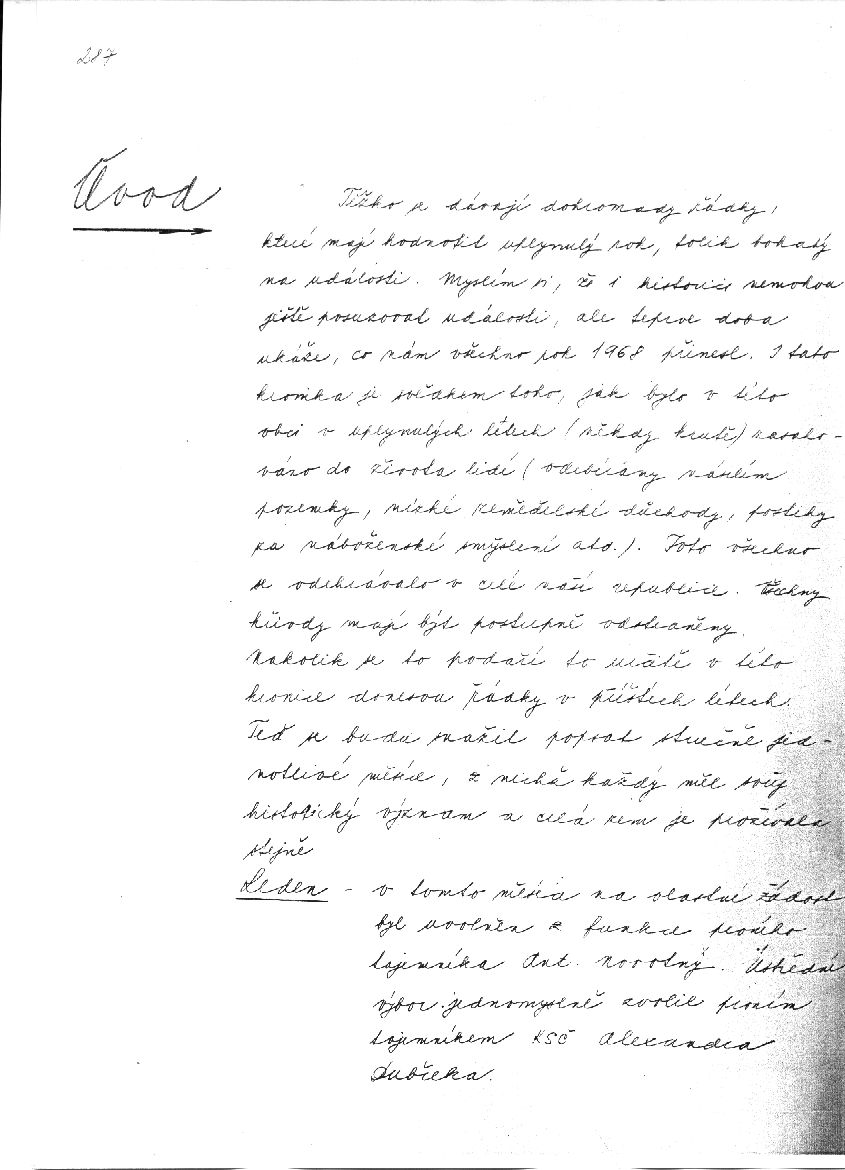 287
Úvod
Těžko se dávají dohromady řádky,
které mají hodnotit uplynulý rok, tolik bohatý
na události. Myslím si, že i historici nemohou
ještě posuzovat události, ale teprve doba
ukáže, co nám všechno rok 1968 přinesl. I tato
kronika je svědkem toho, jak bylo v této
obci v uplynulých létech (někdy krutě) zasaho-
váno do života lidí (odebírány násilím
pozemky, nízké zemědělské důchody, postihy
za náboženské smýšlení atd.). Toto všechno
se odehrávalo v celé naší republice. Všechny
křivdy mají být postupně odstraněny.
Nakolik se to podaří to určitě v této
kronice donesou řádky v příštích létech.
Teď se budu snažit popsat stručně jed-
notlivé měsíce, z nichž každý měl svůj
historický význam a celá zem je prožívala
stejně
Leden - v tomto měsíci na vlastní žádost
byl uvolněn z funkce prvního
tajemníka Ant. Novotný. Ústřední
výbor jednomyslně zvolil prvním
tajemníkem KSČ Alexandra
Dubčeka.